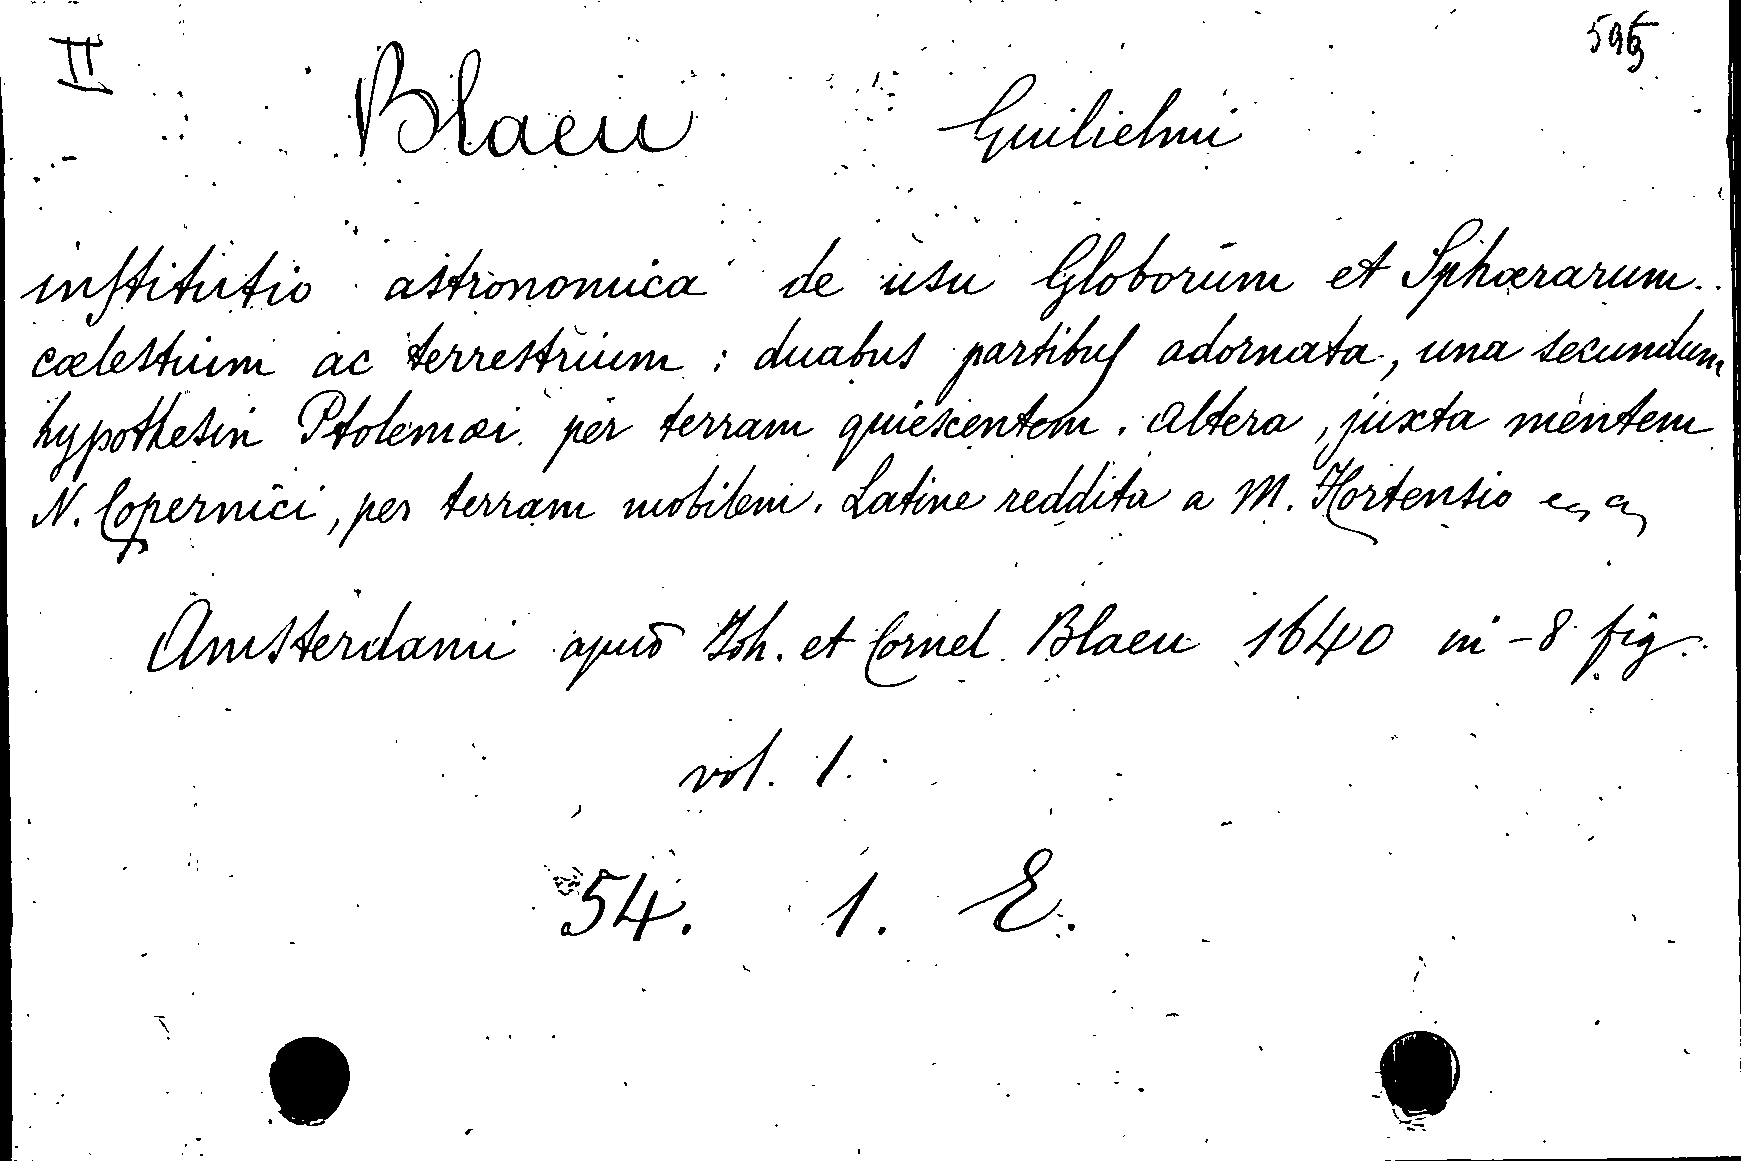 II
Blaeu Guilielmi
institutio astronomica de usu Globorum et Sphærarum
cœlestium ac terrestrium : duabus partibus adornata, una secundum
hypothesin Ptolemæi per terram quiescentem. altera, juxta mentem
N. Copernici, per terram mobilem. Latine reddita a M. Hortensio
Amsterdami apud Joh. et Cornel Blaeu 1640 in-8 fig.
vol. 1.
54. 1. E.